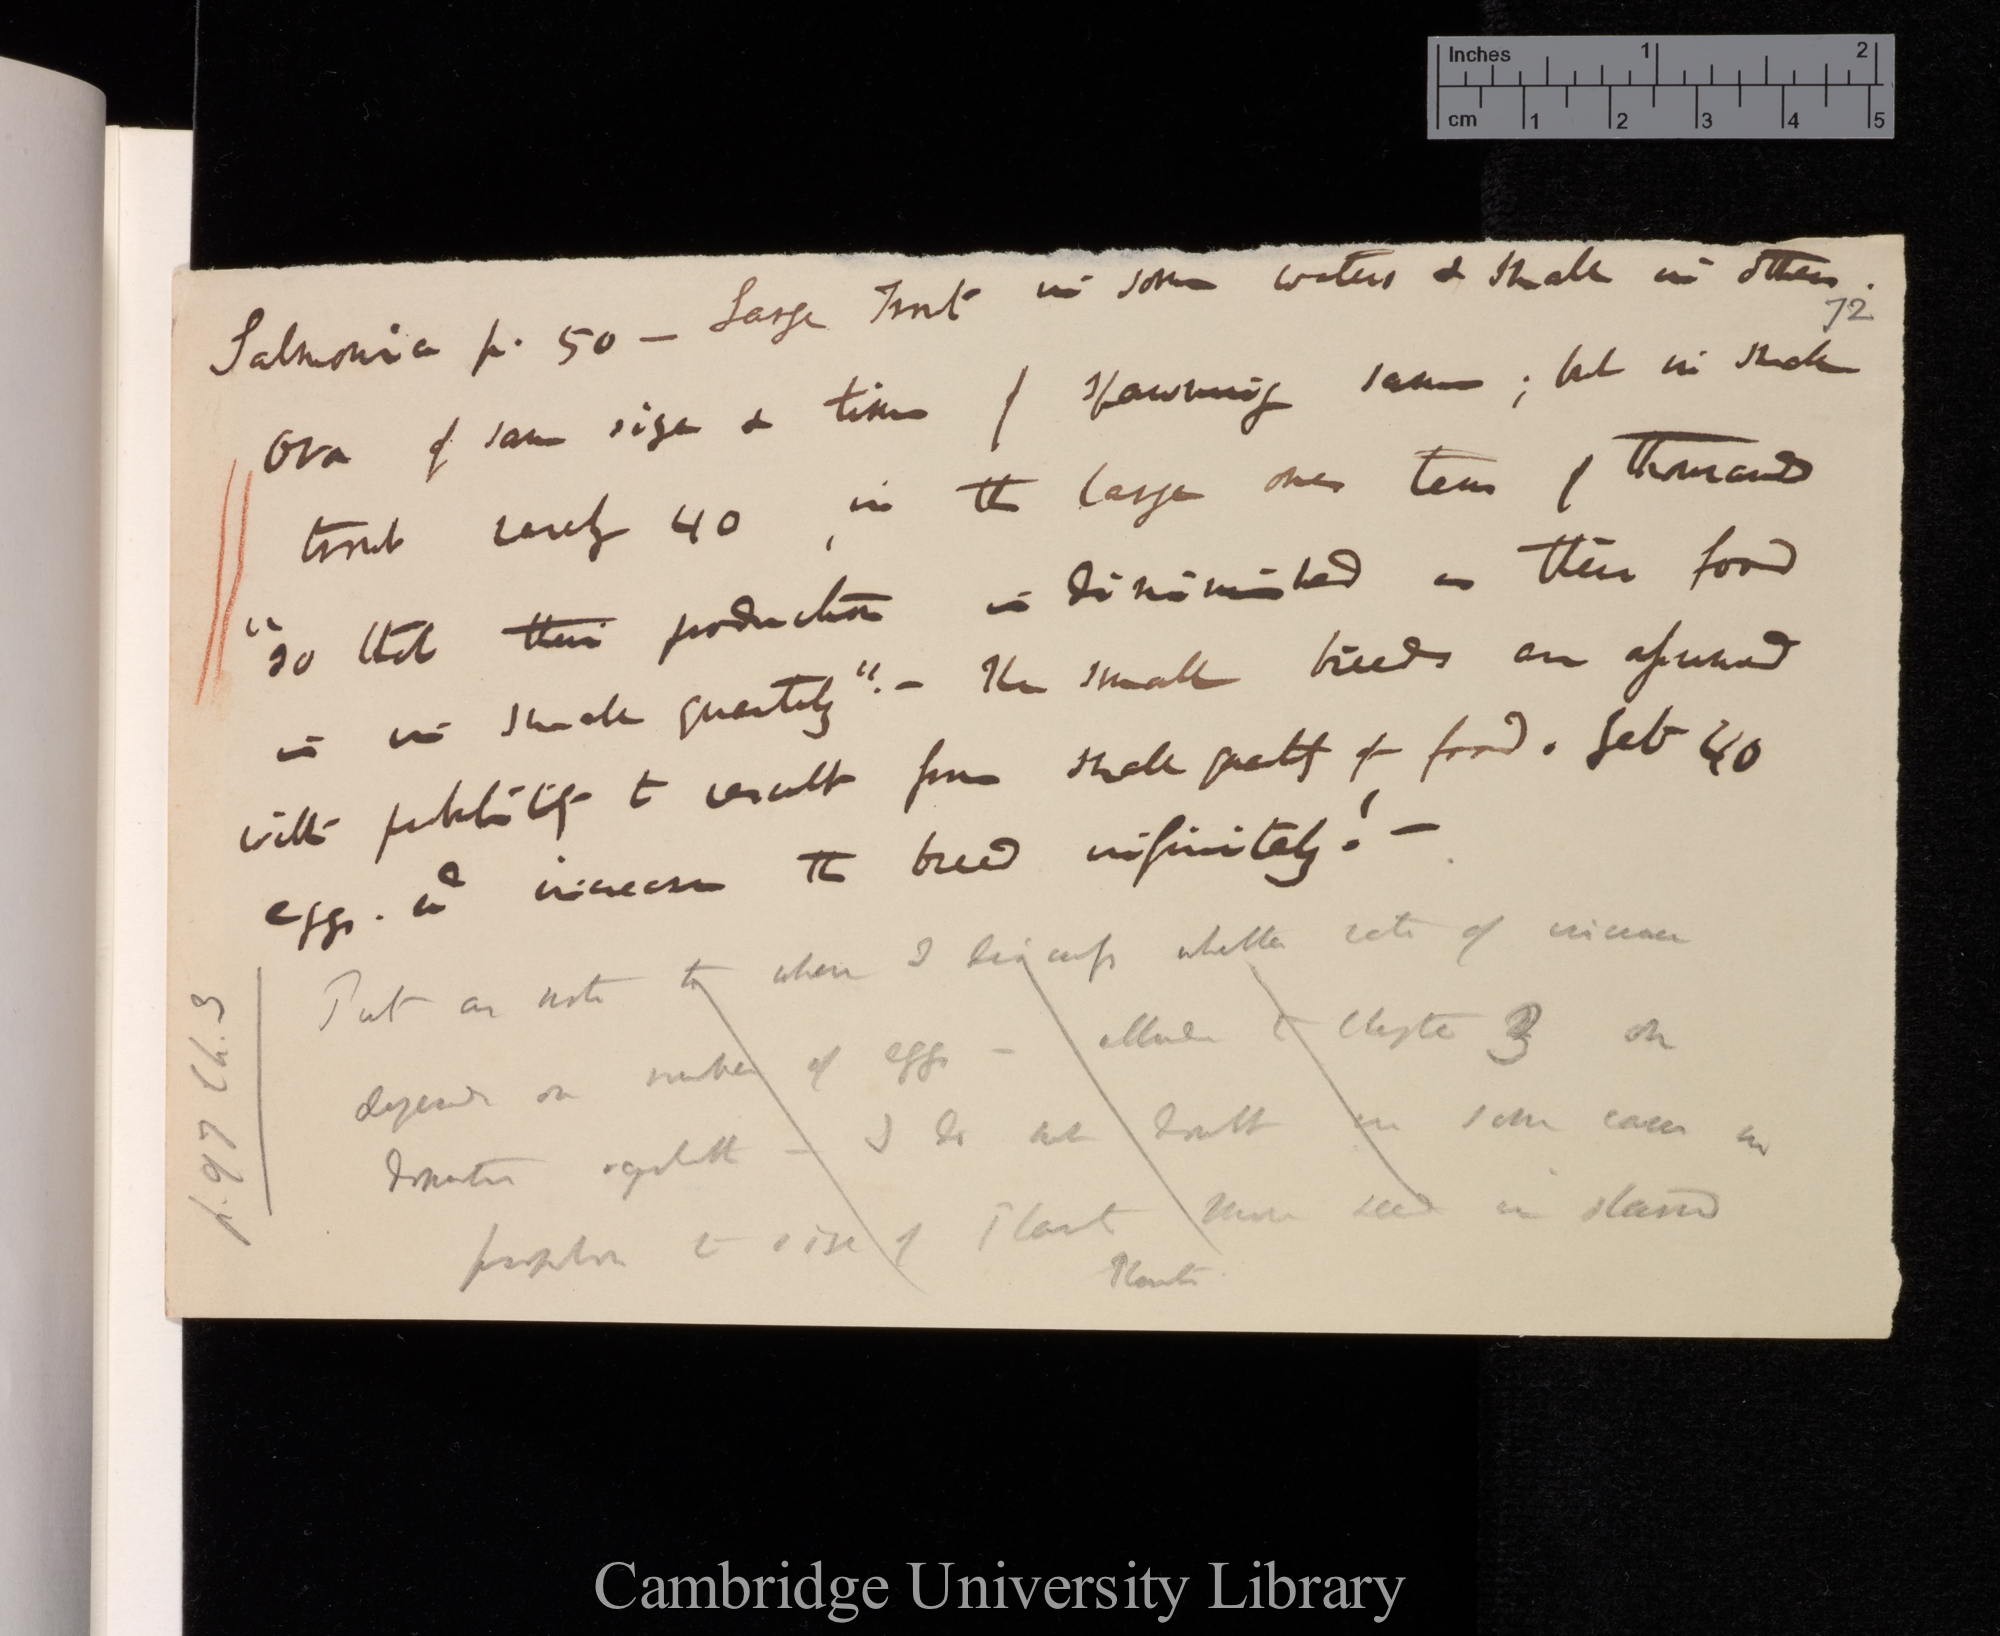 Inches 1 2
cm 1 2 3 4 5
Salmonia p. 50 — Large Trout in some waters & small in others.
72
Ova of same size & time of spawning same; but in small
trout rarely 40, in the large ones tens of thousands
"so that their production is diminished as their food
is in small quantity". — The small breeds are assumed
with probability to result from small quantity of food. Yet 40
eggs. wd increase the breed infinitely! —
Put as note to where I discuss whether rate of increase
depends on number of eggs — allude to Chapter 3 on
domestic — I do not doubt in some cases in
proportion to size of Plant more seed in
Plants
p. 97 Ch. 3
Cambridge University Library